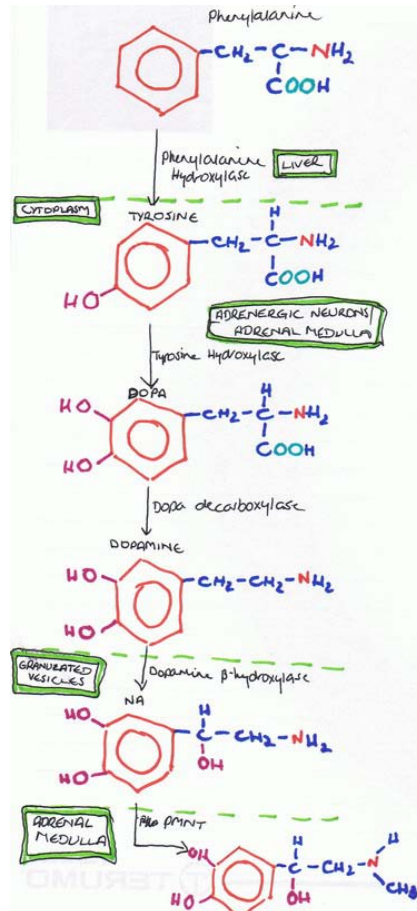 Phenylalanine
CH2-C-NH2
COOH
Phenylalanine
Hydroxylase
LIVER
CYTOPLASM
TYROSINE
H
CH2-C-NH2
COOH
HO
ADRENERGIC NEURONS/
ADRENAL MEDULLA
Tyrosine Hydroxylase
DOPA
H
HO
CH2-C-NH2
HO
COOH
Dopa decarboxylase
DOPAMINE
HO
CH2-CH2-NH2
HO
GRANULATED
VESICLES
Dopamine β-hydroxylase
NA
H
HO
C-CH2-NH2
HO
OH
ADRENAL
MEDULLA
PMNT
H
H
OH
C-CH2-N
HO
OH
CH3
TERUMO